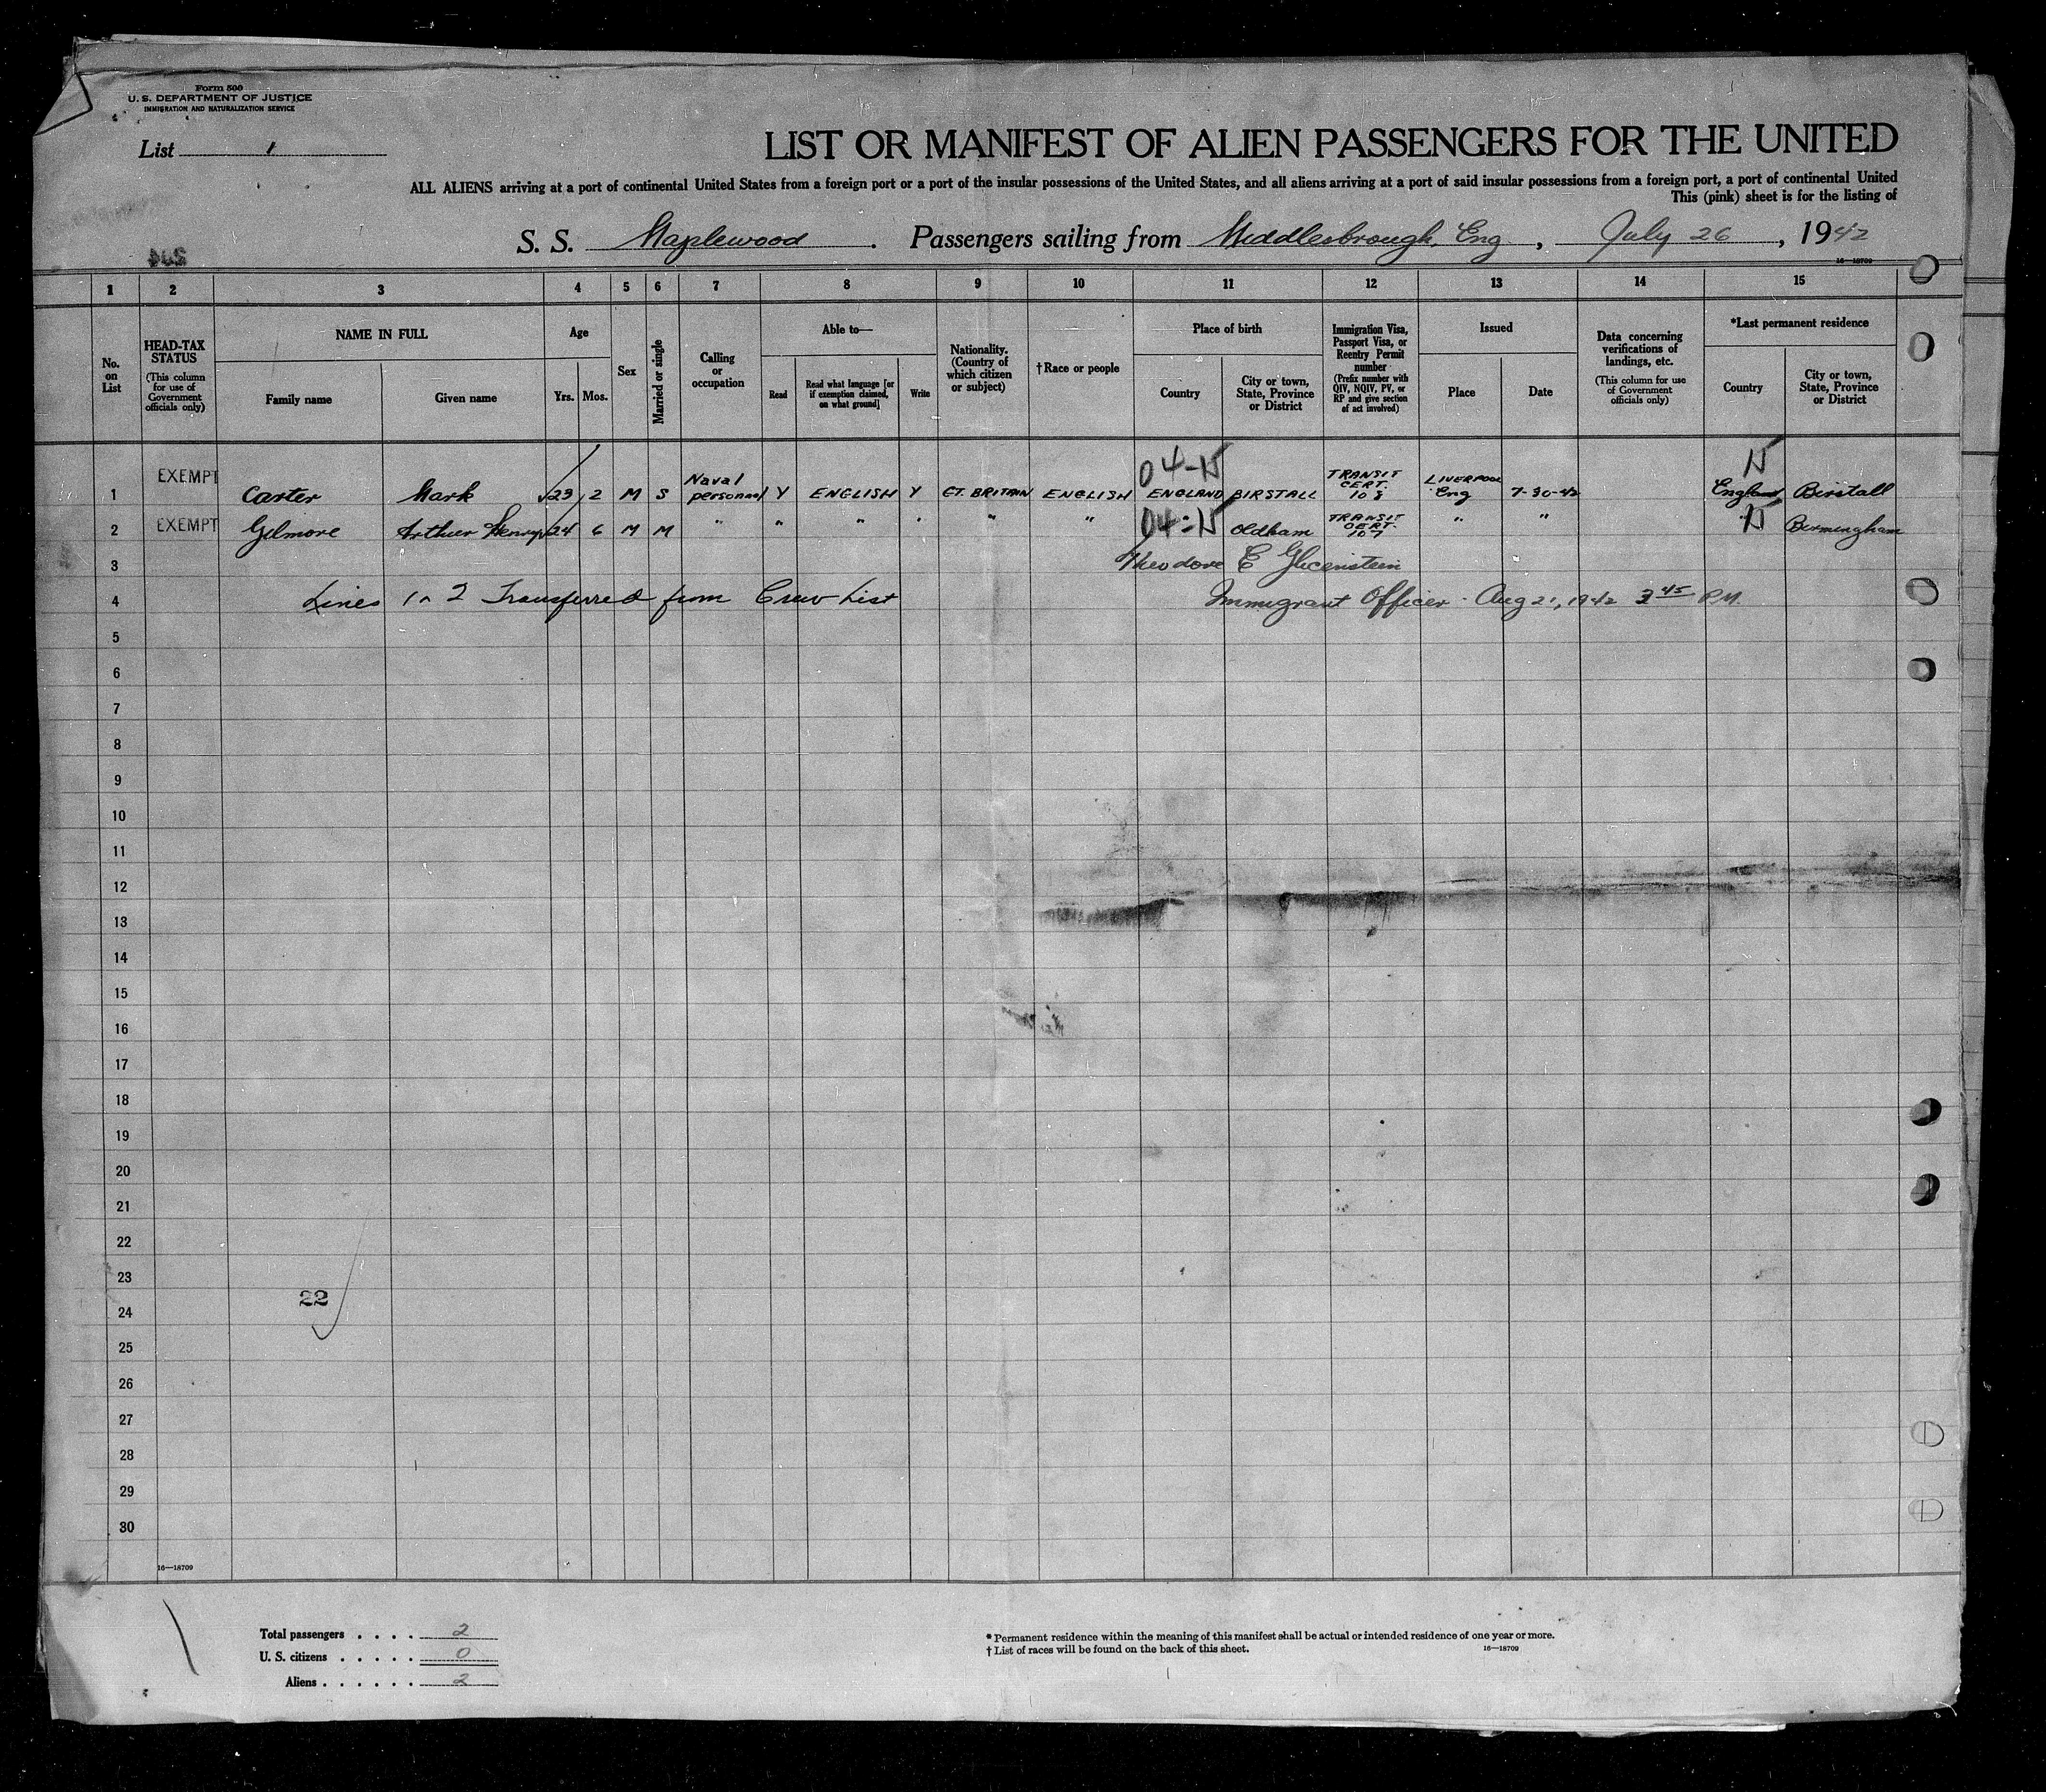 Form 500
U. S. DEPARTMENT OF JUSTICE
IMMIGRATION AND NATURALIZATION SERVICE
List 1
LIST OR MANIFEST OF ALIEN PASSENGERS FOR THE UNITED
ALL ALIENS arriving at a port of continental United States from a foreign port or a port of the insular possessions of the United States, and all aliens arriving at a port of said insular possessions from a foreign port, a port of continental United
This (pink) sheet is for the listing of
S. S. Maplewood . Passengers sailing from Middlesbrough, Eng , July 26 , 1942
16—18709
1 2 3 4 5 6 7 8 9 10 11 12 13 14 15
No. on List
HEAD-TAX STATUS (This column for use of Government officials only)
NAME IN FULL
Family name
Given name
Age
Yrs.
Mos.
Sex
Married or single
Calling or occupation
Able to—
Read
Read what language [or if exemption claimed, on what ground]
Write
Nationality. (Country of which citizen or subject)
†Race or people
Place of birth
Country
City or town, State, Province or District
Immigration Visa, Passport Visa, or Reentry Permit number (Prefix number with QIV, NQIV, PV, or RP and give section of act involved)
Issued
Place
Date
Data concerning verifications of landings, etc. (This column for use of Government officials only)
*Last permanent residence
Country
City or town, State, Province or District
1 EXEMPT Carter Mark 23 2 M S Naval personnel Y ENGLISH Y GT. BRITAIN ENGLISH ENGLAND BIRSTALL TRANSIT CERT. 108 LIVERPOOL Eng 7-30-42 England Birstall
2 EXEMPT Gilmore Arthur Henry 24 6 M M " " " " " " Oldham TRANSIT CERT. 107 " " " Birmingham
3 Theodore E
4 Lines 1 2 Transferred from Crew List Immigrant Officer - Aug 21, 1942 3 45 P.M.
5
6
7
8
9
10
11
12
13
14
15
16
17
18
19
20
21
22
23
22
24
25
26
27
28
29
30
16—18709
Total passengers . . . . 2
U. S. citizens . . . . . 0
Aliens . . . . . . 2
* Permanent residence within the meaning of this manifest shall be actual or intended residence of one year or more.
† List of races will be found on the back of this sheet.
16—18709